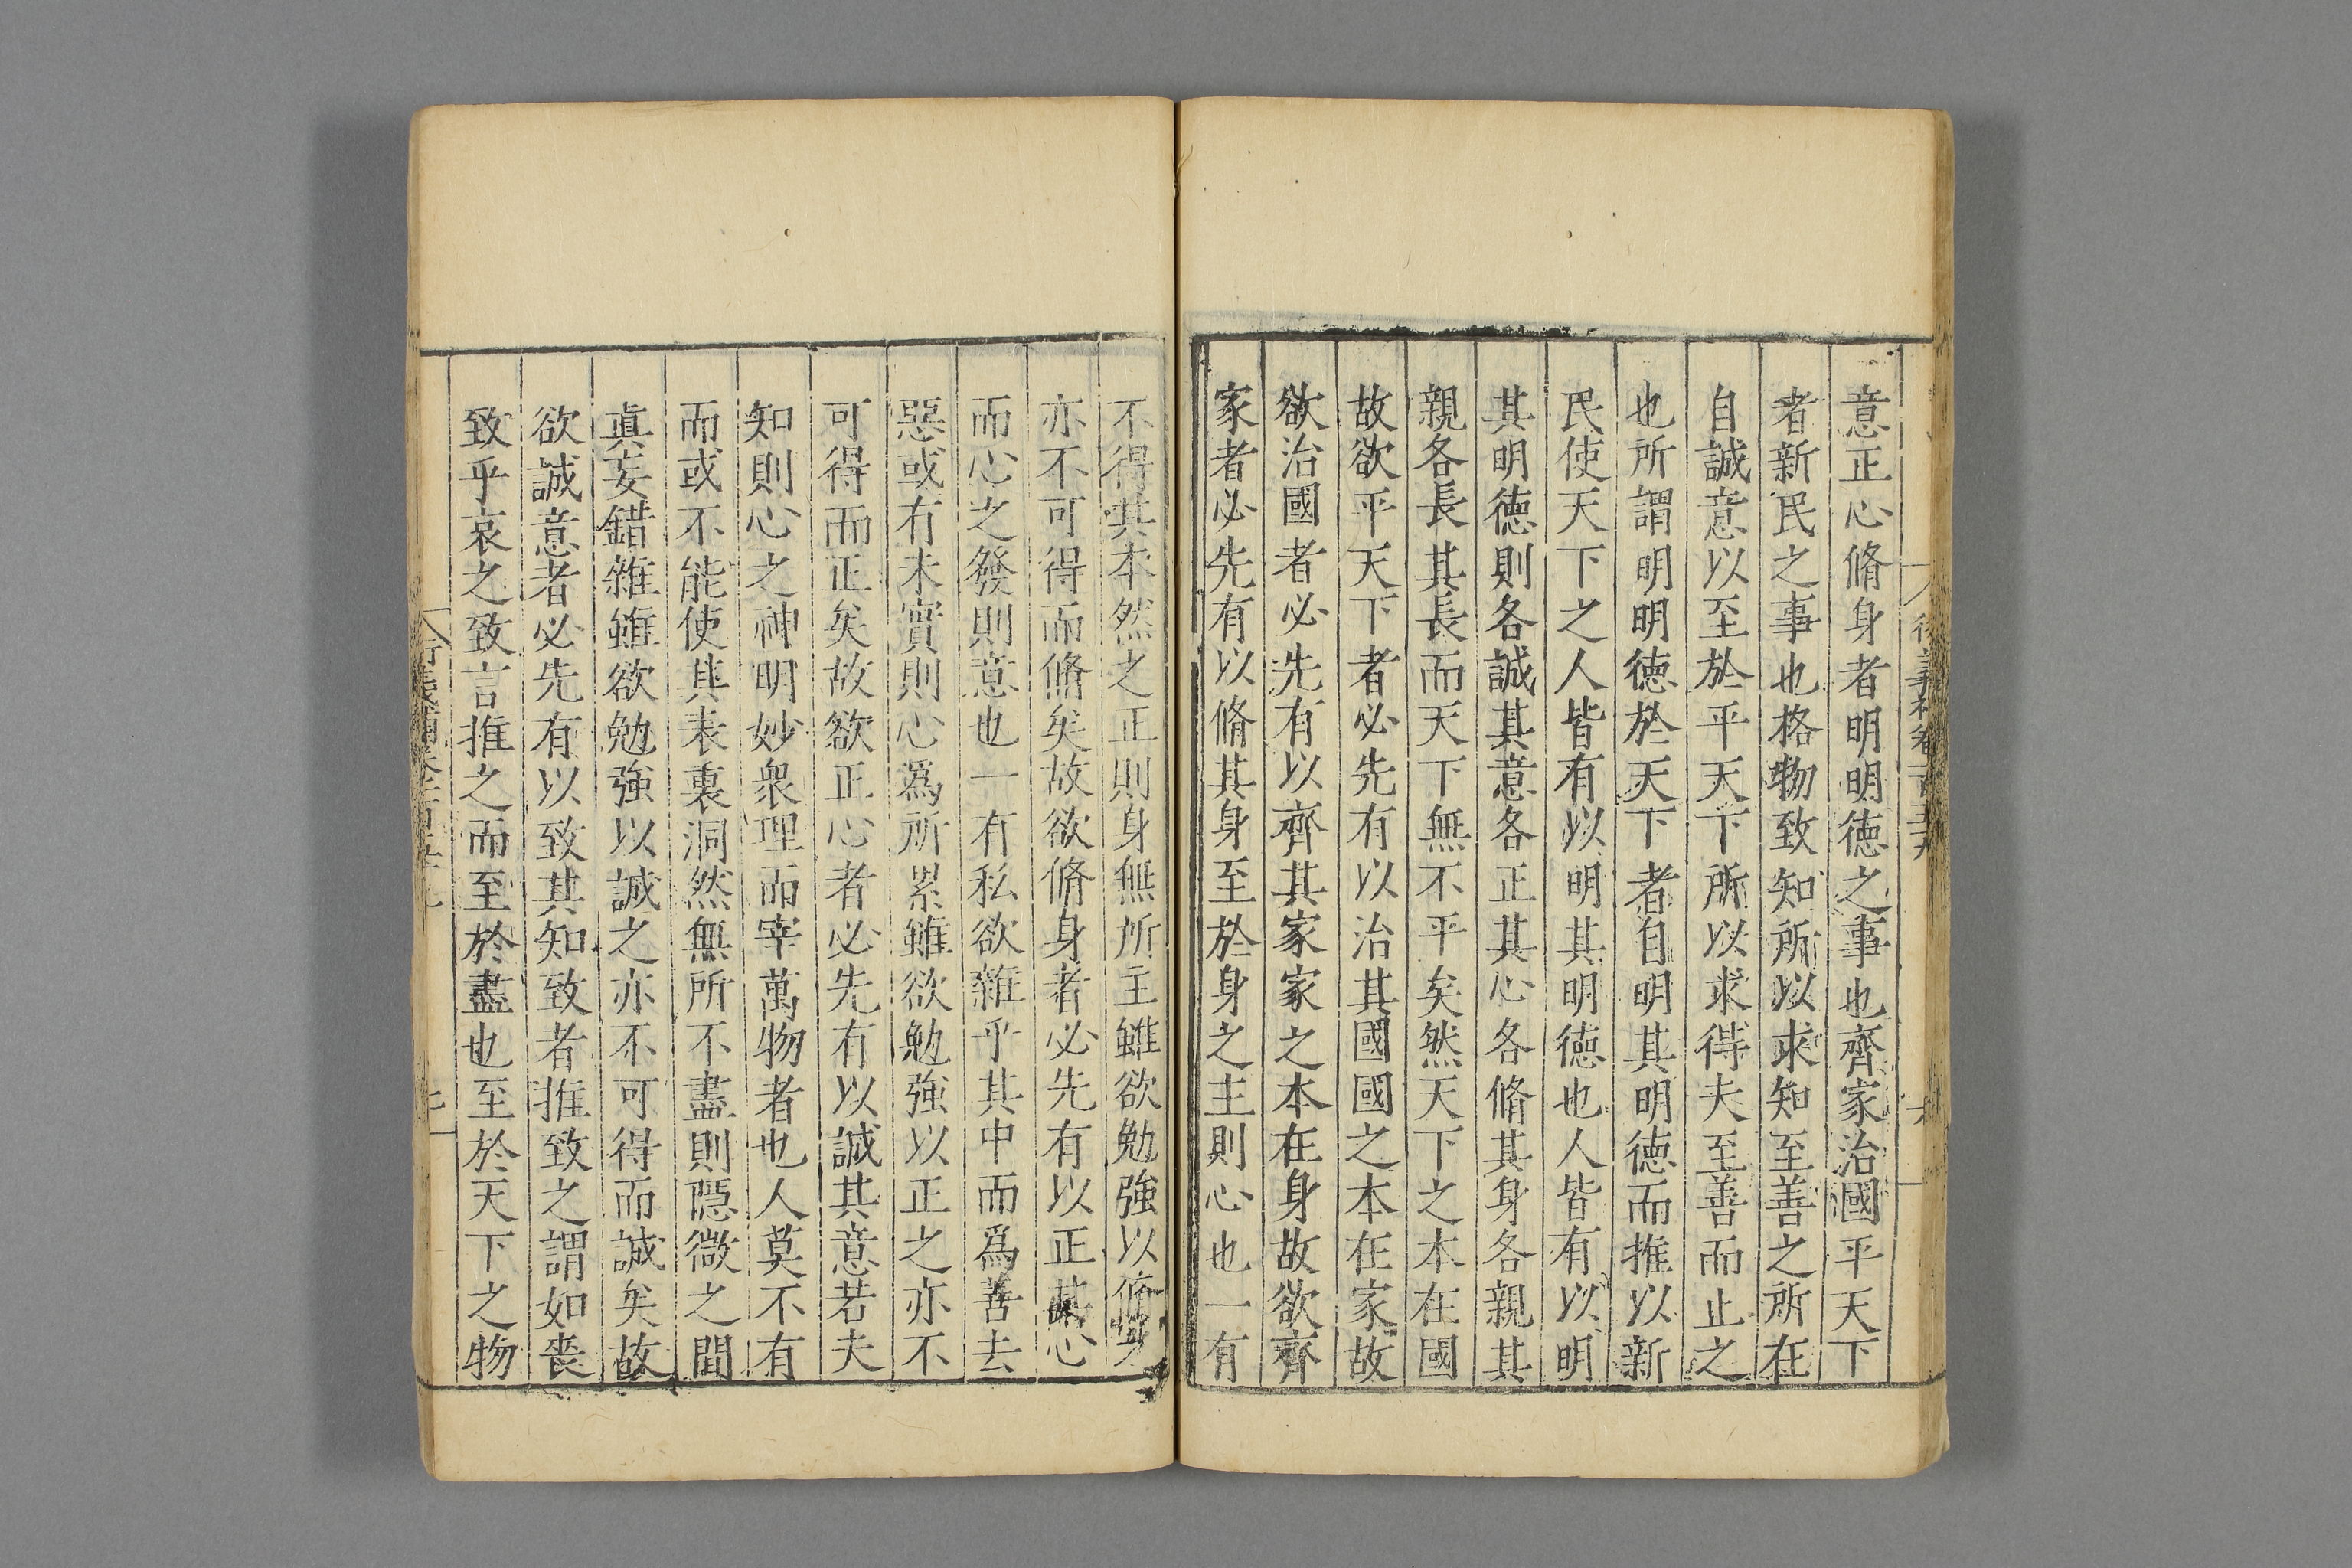 意正心脩身者明明德之事也齊家治國平天下
者新民之事也格物致知所以求知至善之所在
自誠意以至於平天下所以求得夫至善而止之
也所謂明明德於天下者自明其明德而推以新
民使天下之人皆有以明其明德也人皆有以明
其明德則各誠其意各正其心各脩其身各親其
親各長其長而天下無不平矣然天下之本在國
故欲平天下者必先有以治其國國之本在家故
欲治國者必先有以齊其家家之本在身故欲齊
家者必先有以脩其身至於身之主則心也一有
不得其本然之正則身無所主雖欲勉強以脩
亦不可得而脩矣故欲脩身者必先有以正其心
而心之發則意也一有私欲雜乎其中而爲善去
惡或有未實則心爲所累雖欲勉強以正之亦不
可得而正矣故欲正心者必先有以誠其意若夫
知則心之神明妙衆理而宰萬物者也人莫不有
而或不能使其表裏洞然無所不盡則隱微之間
眞妄錯雜雖欲勉強以誠之亦不可得而誠矣故
欲誠意者必先有以致其知致者推致之謂如喪
致乎哀之致言推之而至於盡也至於天下之物